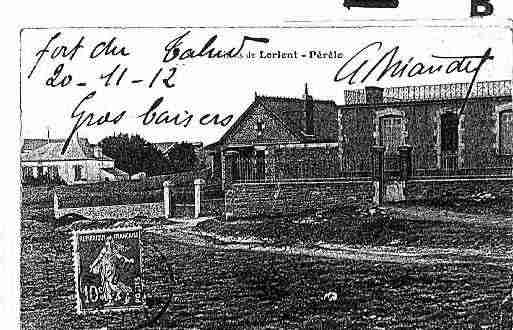 B
fort du Talud
s de Lorient - Pérèlo
20-11-12
A Briaudet
Gros baisers
REPUBLIQUE FRANÇAISE
10